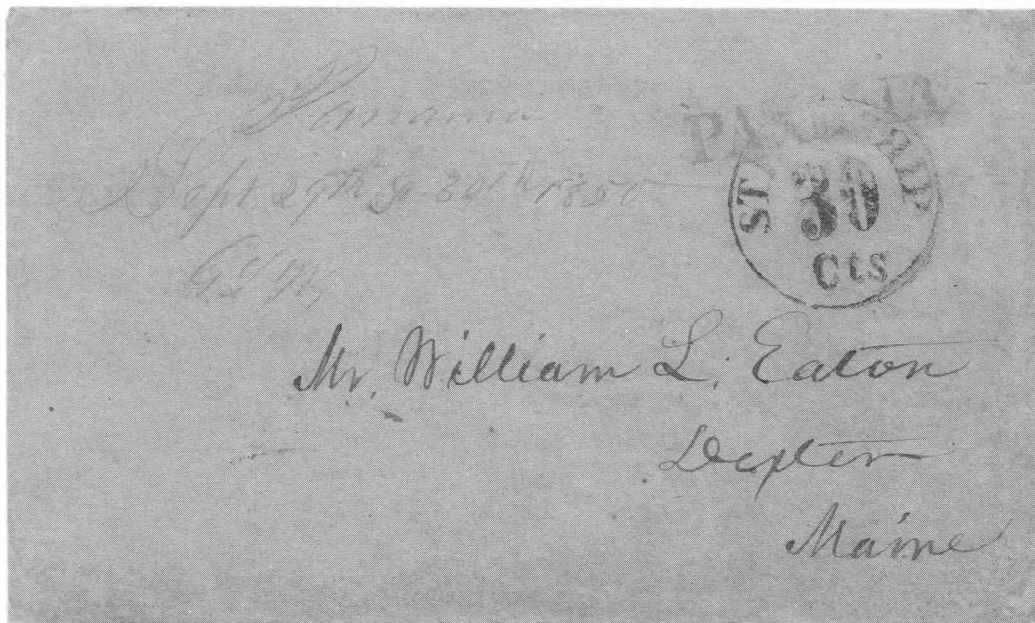 Panama
Sept 29th & 30th 1850
PANAMA
STEAMSHIP
30
Cts
Mr. William L. Eaton
Dexter
Maine